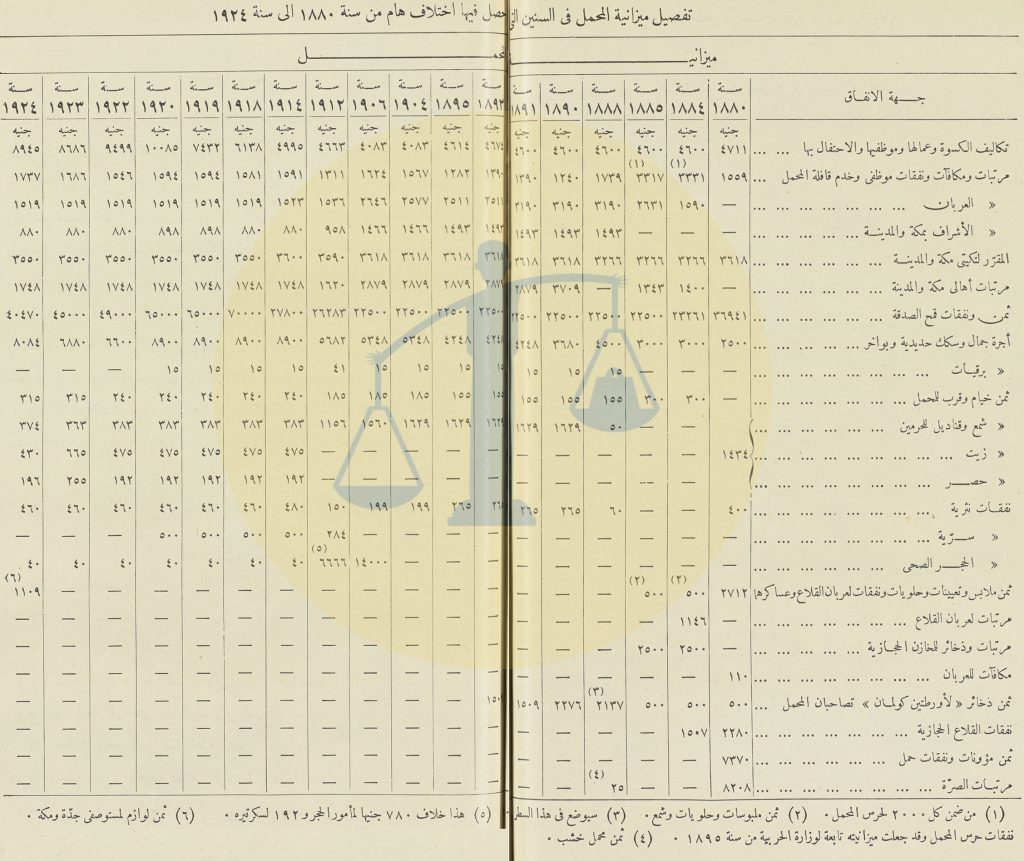 تفصيل ميزانية المحمل فى السنين التى حصل فيها اختلاف هام من سنة ١٨٨٠ الى سنة ١٩٢٤
ميزانيـــة المحمـــل
جـــهة الانفاق سنة ١٨٨٠ سنة ١٨٨٤ سنة ١٨٨٥ سنة ١٨٨٨ سنة ١٨٩٠ سنة ١٨٩١ سنة ١٨٩٣ سنة ١٨٩٥ سنة ١٩٠٤ سنة ١٩٠٦ سنة ١٩١٢ سنة ١٩١٤ سنة ١٩١٨ سنة ١٩١٩ سنة ١٩٢٠ سنة ١٩٢٢ سنة ١٩٢٣ سنة ١٩٢٤
جنيه جنيه جنيه جنيه جنيه جنيه جنيه جنيه جنيه جنيه جنيه جنيه جنيه جنيه جنيه جنيه جنيه جنيه
تكاليف الكسوة وعمالها وموظفيها والاحتفال بها ... ... ٤٧١١ ٤٦٠٠ ٤٦٠٠ ٤٦٠٠ ٤٦٠٠ ٤٦٠٠ ٤٦٧٤ ٤٦١٤ ٤٠٨٣ ٤٠٨٣ ٤٦٦٣ ٤٩٩٥ ٦١٣٨ ٧٤٣٢ ١٠٠٨٥ ٩٤٩٩ ٨٦٨٦ ٨٩٤٥
مرتبات ومكافآت ونفقات موظفى وخدم قافلة المحمل ... ١٥٥٩ (١) ٣٣٣١ (١) ٣٣١٧ ١٧٣٩ ١٢٤٠ ١٣٩٠ ١٣٩٠ ١٢٨٢ ١٥٦٧ ١٦٢٤ ١٣١١ ١٥٩١ ١٥٨١ ١٥٩٤ ١٥٩٤ ١٥٤٦ ١٦٨٦ ١٧٣٧
« العربان ... ... ... ... ... ... ... — ١٥٩٠ ٢٦٣١ ٣١٩٠ ٣١٩٠ ٣١٩٠ ٢٥١١ ٢٥١١ ٢٥٧٧ ٢٦٤٦ ١٥٣٦ ١٥٢٣ ١٥١٩ ١٥١٩ ١٥١٩ ١٥١٩ ١٥١٩ ١٥١٩
« الأشراف بمكة والمدينــة ... ... ... ... ... — — — ١٤٩٣ ١٤٩٣ ١٤٩٣ ١٤٩٣ ١٤٩٣ ١٤٦٦ ١٤٦٦ ٩٥٨ ٨٨٠ ٨٨٠ ٨٩٨ ٨٩٨ ٨٨٠ ٨٨٠ ٨٨٠
المقرّر لتكيتى مكة والمدينــة ... ... ... ... ... ... ٣٦١٨ ٣٢٦٦ ٣٢٦٦ ٣٢٦٦ ٣٦١٨ ٣٦١٨ ٣٦١٨ ٣٦١٨ ٣٦١٨ ٣٦١٨ ٣٥٩٠ ٣٦٠٠ ٣٥٥٠ ٣٥٥٠ ٣٥٥٠ ٣٥٥٠ ٣٥٥٠ ٣٥٥٠
مرتبات أهالى مكة والمدينة ... ... ... ... ... ... — ١٤٠٠ ١٣٤٣ — ٣٧٠٩ ٢٨٧٩ ٢٨٧٩ ٢٨٧٩ ٢٨٧٩ ٢٨٧٩ ١٦٢٠ ١٧٤٨ ١٧٤٨ ١٧٤٨ ١٧٤٨ ١٧٤٨ ١٧٤٨ ١٧٤٨
ثمن ونفقات قمح الصدقة ... ... ... ... ... ... ٣٦٩٤١ ٢٣٢٦١ ٢٢٥٠٠ ٢٢٥٠٠ ٢٢٥٠٠ ٢٢٥٠٠ ٢٢٥٠٠ ٢٢٥٠٠ ٢٢٥٠٠ ٢٢٥٠٠ ٢٦٢٨٣ ٢٧٨٠٠ ٧٠٠٠٠ ٦٥٠٠٠ ٦٥٠٠٠ ٤٩٠٠٠ ٤٥٠٠٠ ٤٠٤٧٠
أجرة جمال وسكك حديدية وبواخر ... ... ... ... ... ٢٥٠٠ ٣٠٠٠ ٣٠٠٠ ٤٥٠٠ ٣٦٨٠ ٤٢٤٨ ٤٢٤٨ ٤٢٤٨ ٥٣٤٨ ٥٣٤٨ ٥٦٨٢ ٨٩٠٠ ٨٩٠٠ ٨٩٠٠ ٨٩٠٠ ٦٦٠٠ ٦٨٨٠ ٨٠٨٤
« برقيات ... ... ... ... ... ... ... ... — — — ١٥ ١٥ ١٥ ١٥ ١٥ ١٥ ١٥ ٤١ ١٥ ١٥ ١٥ ١٥ — — —
ثمن خيام وقرب للحمل ... ... ... ... ... ... ... — ٣٠٠ ٣٠٠ ١٥٥ ١٥٥ ١٥٥ ١٥٥ ١٥٥ ١٨٥ ١٨٥ ١٨٥ ٢٤٠ ٢٤٠ ٢٤٠ ٢٤٠ ٢٤٠ ٣١٥ ٣١٥
« شمع وقناديل للحرمين ... ... ... ... ... ... — — ٥٠ ١٦٢٩ ١٦٢٩ ١٦٢٩ ١٦٢٩ ١٦٢٩ ١٥٦٠ ١١٥٦ ٣٨٣ ٣٨٣ ٣٨٣ ٣٨٣ ٣٨٣ ٣٦٣ ٣٧٤
« زيت ... ... ... ... ... ... ... ... ١٤٣٤ — — — — — — — — — — ٤٧٥ ٤٧٥ ٤٧٥ ٤٧٥ ٤٧٥ ٦٦٥ ٤٣٠
« حصـــر ... ... ... ... ... ... ... ... — — — — — — — — — — ١٩٢ ١٩٢ ١٩٢ ١٩٢ ١٩٢ ٢٥٥ ١٩٦
نفقــات نثرية ... ... ... ... ... ... ... ... ٤٠٠ — — ٦٠ ٢٦٥ ٢٦٥ ٢٦٥ ٢٦٥ ١٩٩ ١٩٩ ١٥٠ ٤٨٠ ٤٦٠ ٤٦٠ ٤٦٠ ٤٦٠ ٤٦٠ ٤٦٠
« ســرّية ... ... ... ... ... ... ... ... — — — — — — — — — — ٢٨٤ ٥٠٠ ٥٠٠ ٥٠٠ ٥٠٠ — — —
« الحجــر الصحى ... ... ... ... ... ... ... — — — — — — — — — ١٤٠٠٠ (٥) ٦٦٦٦ ٤٠ ٤٠ ٤٠ ٤٠ ٤٠ ٤٠ ٤٠
ثمن ملابس وتعيينات وحلويات ونفقات لعربان القلاع وعساكرها ٢٧١٢ (٢) ٥٠٠ (٢) ٥٠٠ — — — — — — — — — — — — — — (٦) ١١٠٩
مرتبات لعربان القلاع ... ... ... ... ... ... ... — ١١٤٦ — — — — — — — — — — — — — — — —
مرتبات وذخائر للخازن الحجــازية ... ... ... ... ... — ٢٥٠٠ ٢٥٠٠ — — — — — — — — — — — — — — —
مكافآت للعربان ... ... ... ... ... ... ... ... ١١٠ — — — — — — — — — — — — — — — — —
ثمن ذخائر « لأورطتين كولمان » تصاحبان المحمل ... ٥٠٠ ٥٠٠ ٥٠٠ (٣) ٢١٣٧ ٢٢٧٦ ١٥٠٩ ١٥٠٩ — — — — — — — — — — —
نفقات القلاع الحجازية ... ... ... ... ... ... ... ٢٢٨٠ ١٥٠٧ — — — — — — — — — — — — — — — —
ثمن مؤونات ونفقات حمل ... ... ... ... ... ... ... ٧٣٧٠ — — — — — — — — — — — — — — — — —
مرتبــات الصرّة ... ... ... ... ... ... ... ... ٨٢٠٨ — — (٤) ٢٥ — — — — — — — — — — — — — —
(١) من ضمن كل ٢٠٠٠ لحرس المحمل . (٢) ثمن ملبوسات وحلويات وشمع . (٣) سيوضع فى هذا السطر (٥) هذا خلاف ٧٨٠ جنيها لمأمور الحجر و ١٩٢ لسكرتيره . (٦) ثمن لوازم لمستوصفى جدّة ومكة .
نفقات حرس المحمل وقد جعلت ميزانيته تابعة لوزارة الحربية من سنة ١٨٩٥ . (٤) ثمن محمل خشب .